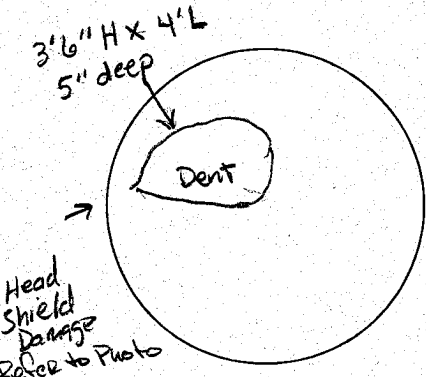 3'6" H X 4'L
5" deep
Dent
Head
Shield
Damage
Refer to Photo